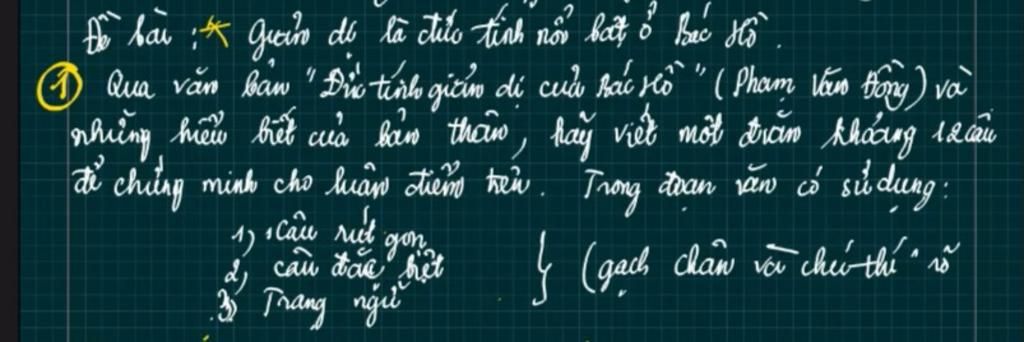 Đề bài : * Giản dị là đức tính nổi bật ở Bác Hồ.
① Qua văn bản "Đức tính giản dị của Bác Hồ" (Phạm Văn Đồng) và
những hiểu biết của bản thân, hãy viết một đoạn khoảng 12 câu
để chứng minh cho luận điểm trên. Trong đoạn văn có sử dụng:
1, câu rút gọn
2, câu đặc biệt
3, Trạng ngữ
} (gạch chân và chú thích rõ